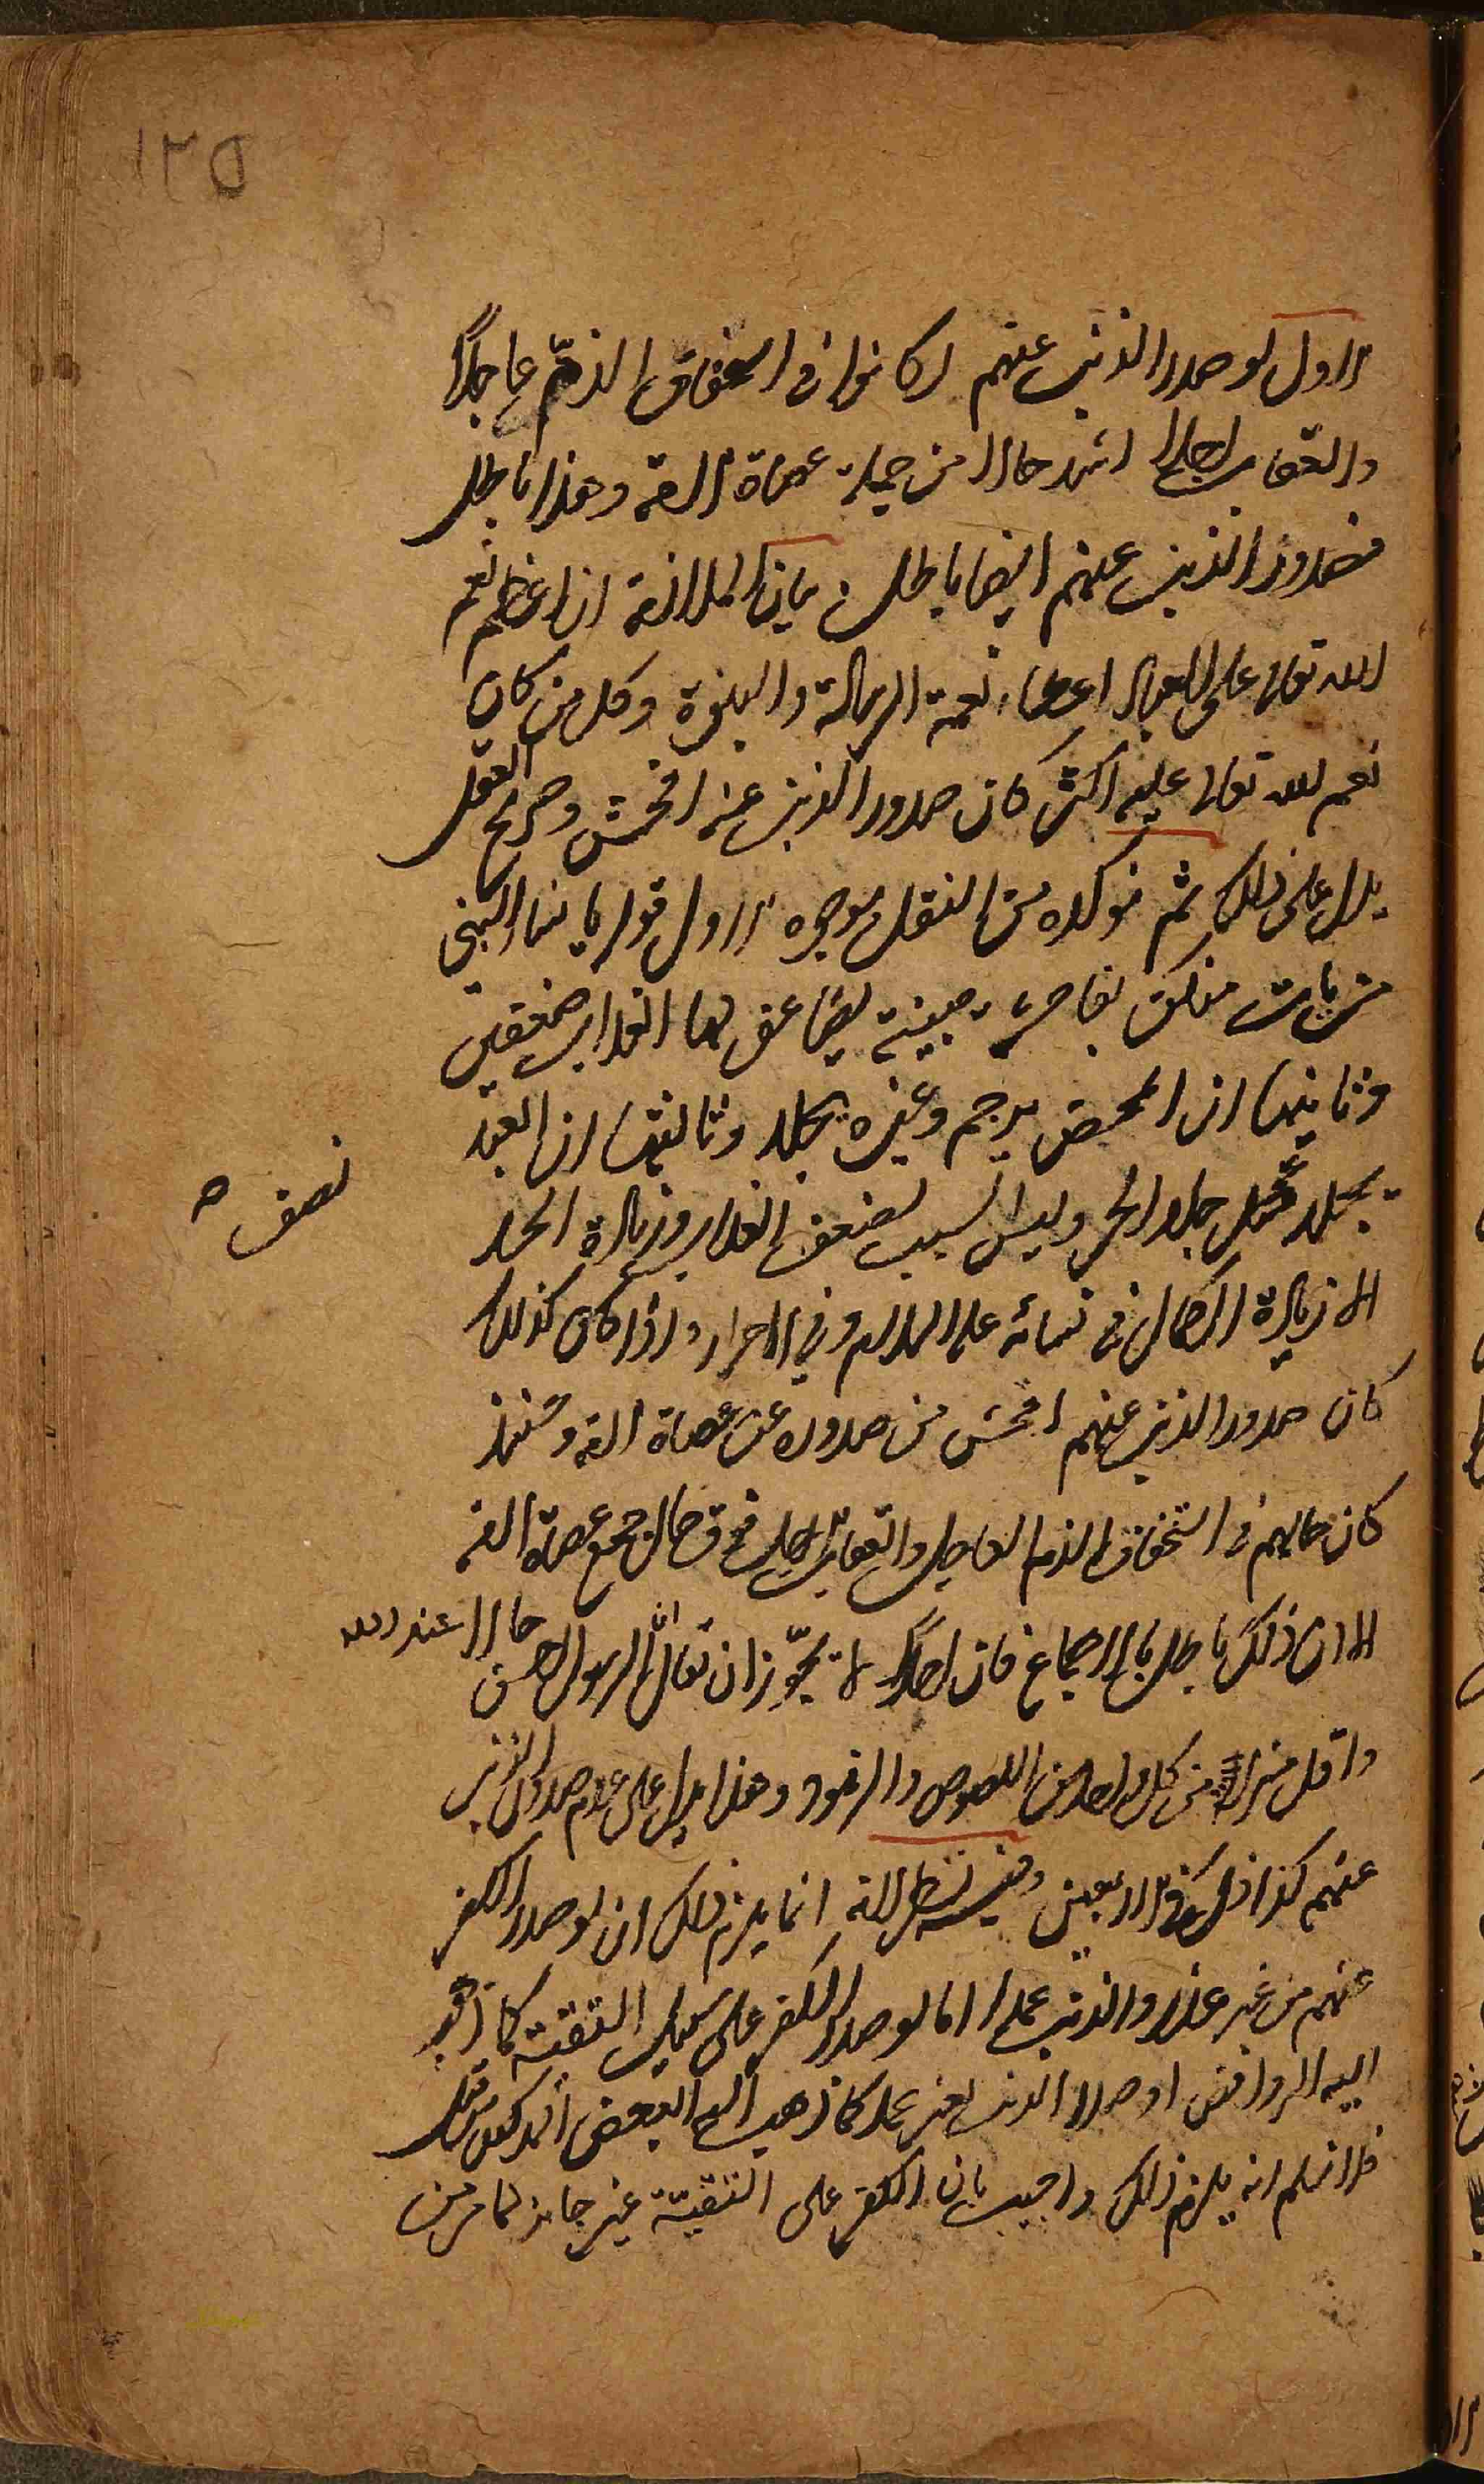 الاول لو صدر الذنب عنهم لكانوا فى استحقاق الذم عاجلا
والعقاب اجلا اشد حالا من جملة عصاة الامة وهذا باطل
فصدور الذنب عنهم ايضا باطل بيان الملازمة ان اعظم نعم
الله تعالى على العباد اعطاء نعمة الرسالة والنبوة وكل من كان
نعم الله تعالى عليه اكثر كان صدور الذنب عنه افحش وصريح العقل
يدل على ذلك ثم نوكده من النقل بوجوه الاول قوله يا نساء النبى
من يات منكن بفاحشة مبينة يضاعف لها العذاب ضعفين
وثانيها ان المحصن يرجم وغيره يجلد وثالثها ان العبد
يجلد نصف جلد الحر وليس السبب لضعف العذاب وزيادة الحد
الا زيادة الكمال فى نسائه عليه السلام وفى الاحرار واذا كان كذلك
كان صدور الذنب عنهم افحش من صدوره عن عصاة الامة وحينئذ
كان حالهم فى استحقاق الذم العاجل والعقاب الاجل فوق حال جميع عصاة الامة
الا ان ذلك باطل بالاجماع فان احدا لا يجوز ان يقال ان الرسول اخس حالا عند الله
واقل منزلة من كل واحد من اللصوص والزنوة وهذا يدل على عدم صدور الذنب
عنهم كذا فى الاربعين وفيه نظر لانه انما يلزم ذلك ان لو صدر الكفر
عنهم من غير عذر والذنب عمدا اما لو صدر الكفر على سبيل التقية كما ذهب
اليه الروافض او صدر الذنب بغير عمد كما ذهب اليه البعض المذكور قبل
فلا نسلم انه يلزم ذلك واجيب بان الكفر على التقية غير جائز لما مر من
نصف
١٢٥